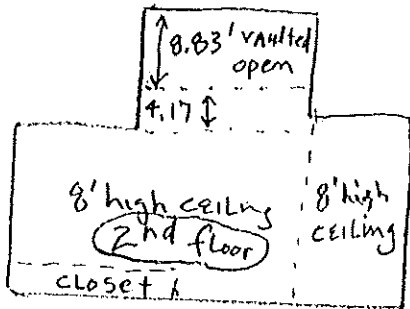 8.83' vaulted
open
4.17
8' high ceiling
2nd floor
8' high
ceiling
closet